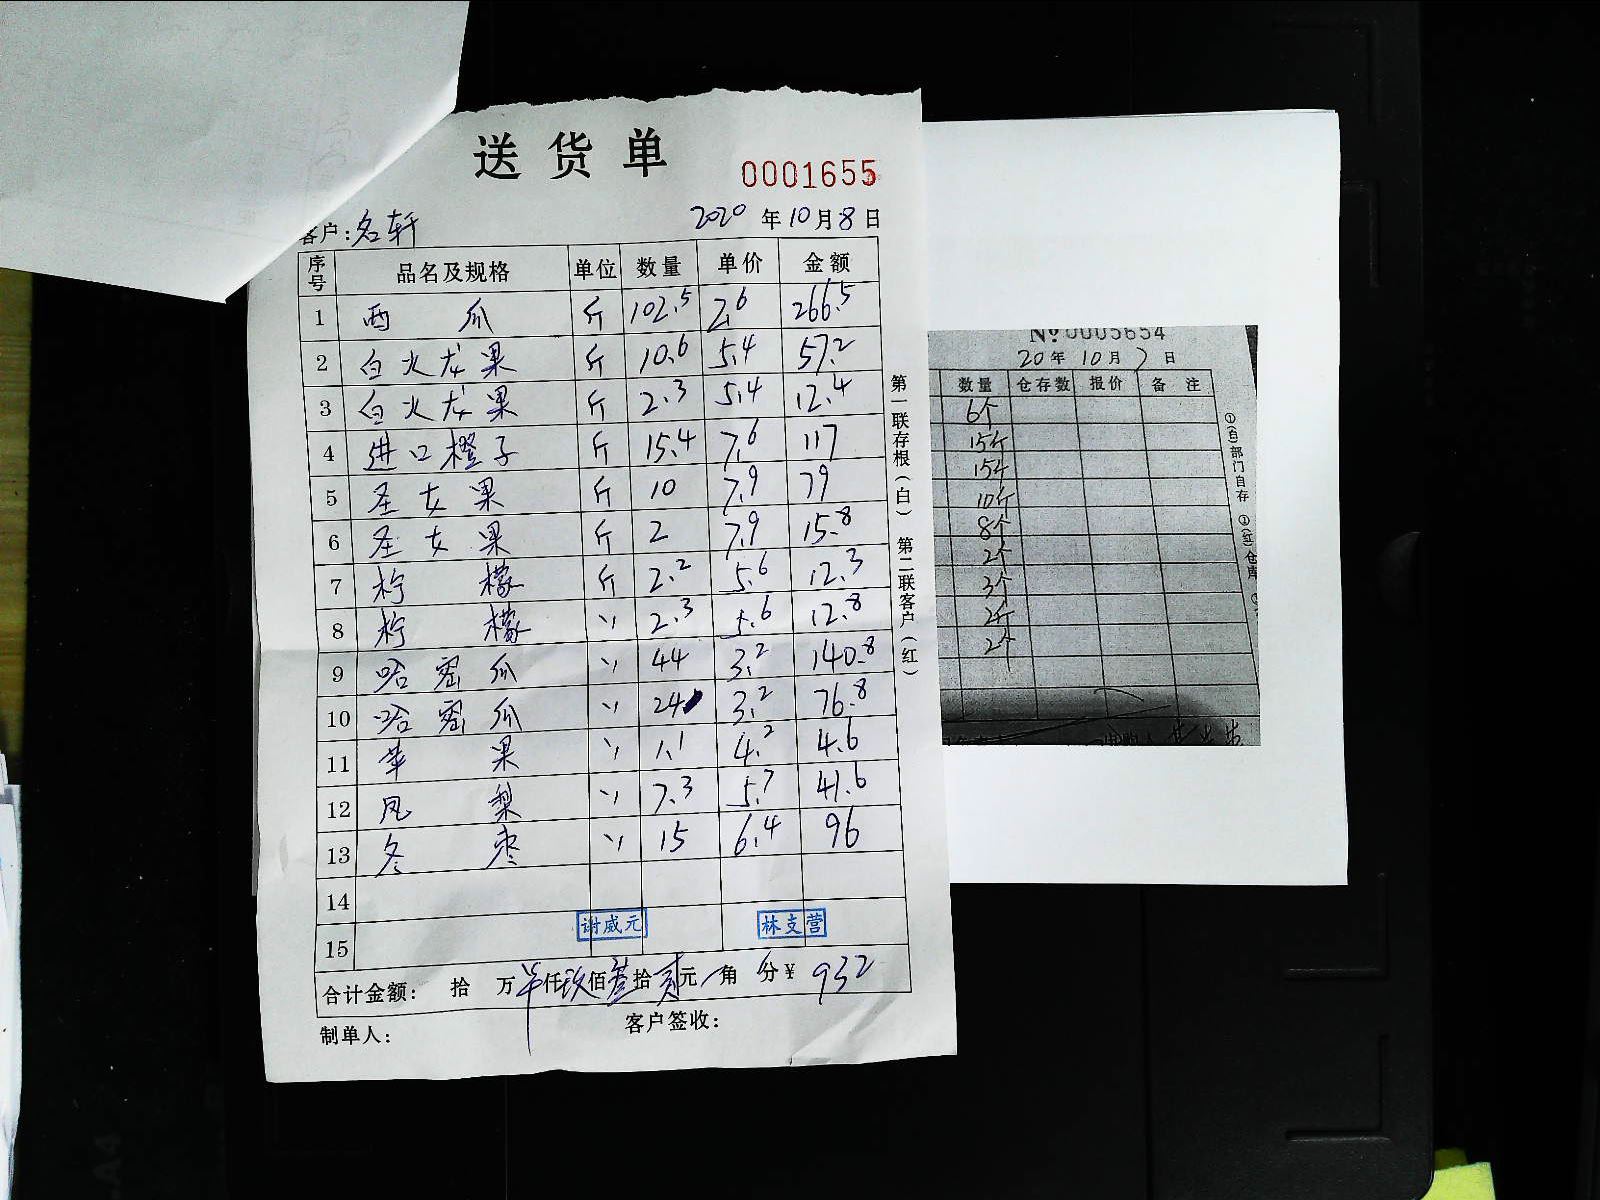 送货单
0001655
客户：名轩 2020年10月8日
序号 品名及规格 单位 数量 单价 金额
1 西瓜 斤 102.5 2.6 266.5
2 白火龙果 斤 10.6 5.4 57.2
3 白火龙果 斤 2.3 5.4 12.4
4 进口橙子 斤 15.4 7.6 117
5 圣女果 斤 10 7.9 79
6 圣女果 斤 2 7.9 15.8
7 柠檬 斤 2.2 5.6 12.3
8 柠檬 〃 2.3 5.6 12.8
9 哈密瓜 〃 44 3.2 140.8
10 哈密瓜 〃 24 3.2 76.8
11 苹果 〃 1.1 4.2 4.6
12 凤梨 〃 7.3 5.7 41.6
13 冬枣 〃 15 6.4 96
14
15
谢威元 林支营
合计金额： 拾 万 仟玖佰叁拾贰元 角 分¥ 932
制单人： 客户签收：
第一联存根（白） 第二联客户（红）
№ 0005654
20年10月7日
数量 仓存数 报价 备注
6个
15斤
15斤
10斤
8个
2个
3个
2斤
2个
①(白)部门自存 ②(红)仓库